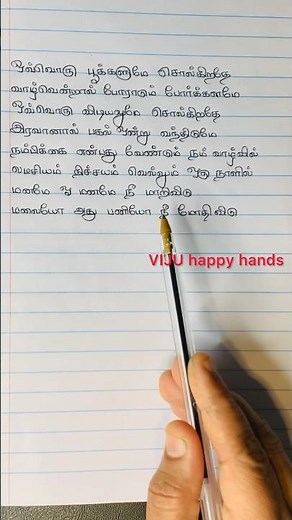 ஒவ்வொரு பூக்களுமே சொல்கிறதே
வாழ்வென்றால் போராடும் போர்க்களமே
ஒவ்வொரு விடியலுமே சொல்கிறதே
இரவானால் பகல் ஒன்று வந்திடுமே
நம்பிக்கை என்பது வேண்டும் நம் வாழ்வில்
லட்சியம் நிச்சயம் வெல்லும் ஒரு நாளில்
மனமே ஓ மனமே நீ மாறிவிடு
மலையோ அது பனியோ நீ மோதிவிடு
VIJU happy hands